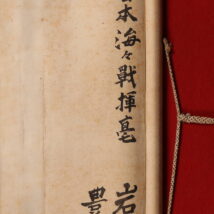 本海々戦揮毫
岩
豊